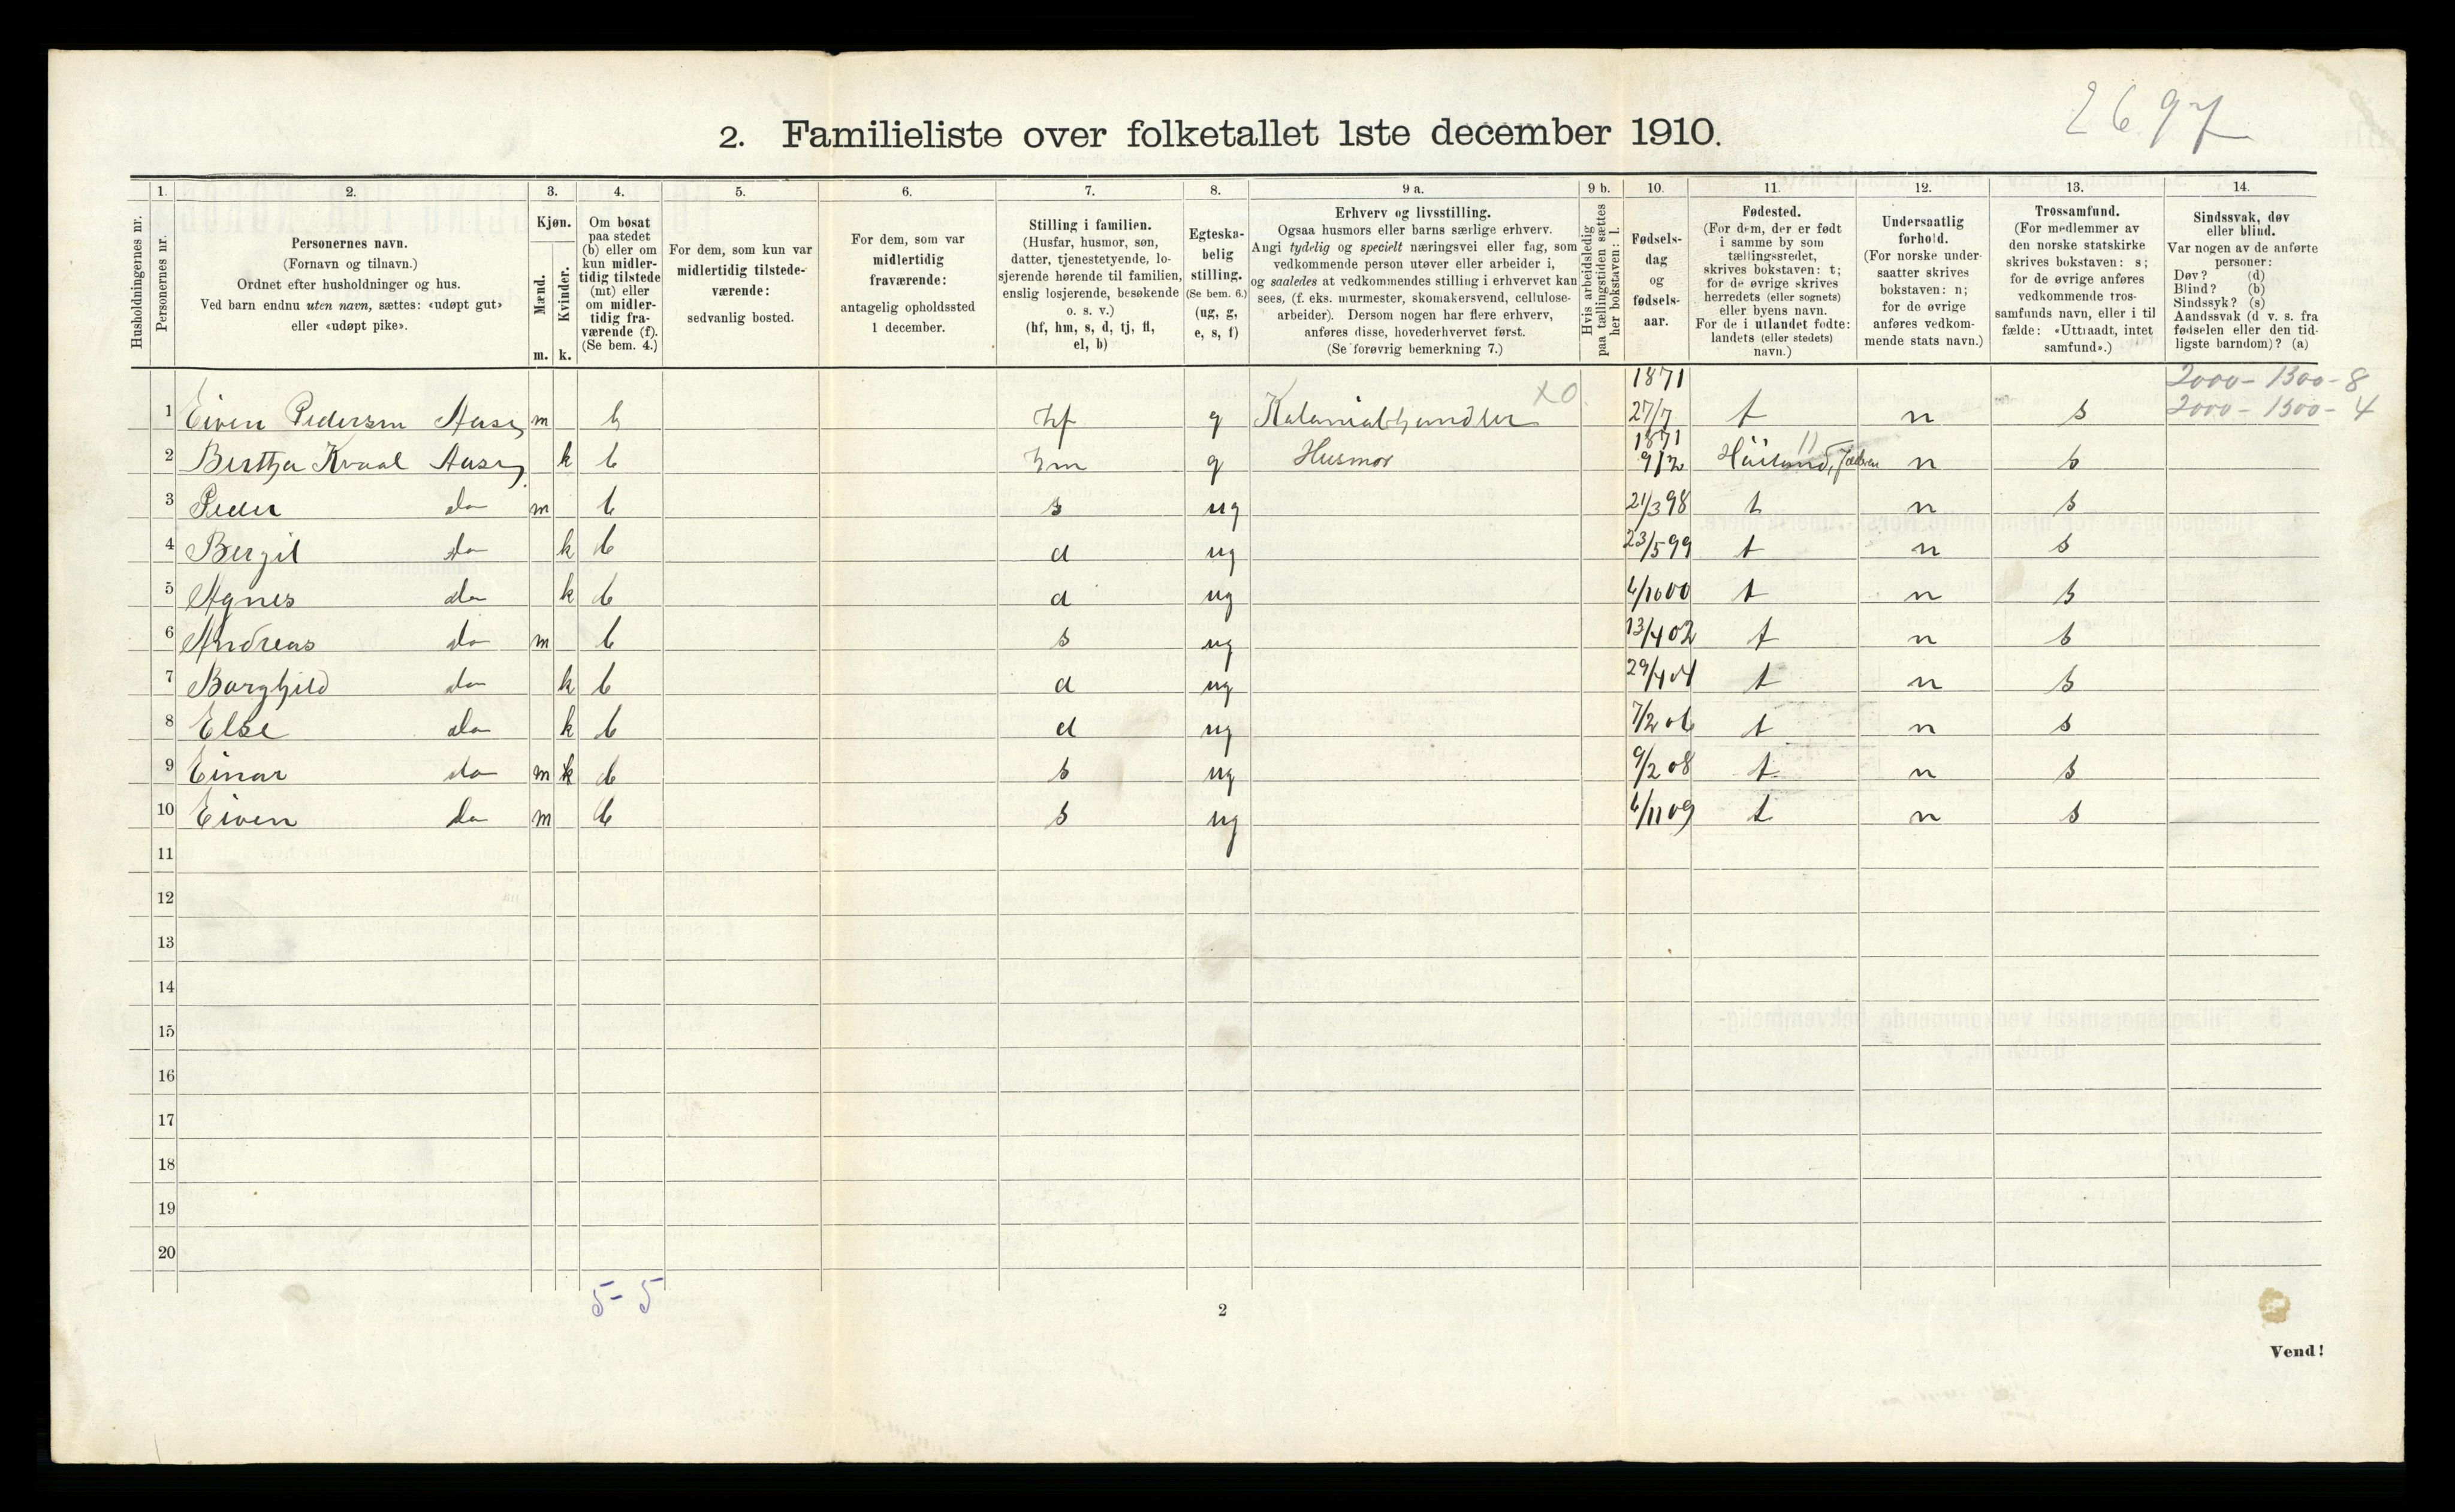 2697
2. Familieliste over folketallet 1ste december 1910.
1. 2. 3. 4. 5. 6. 7. 8. 9 a. 9 b. 10. 11. 12. 13. 14.
Husholdningernes nr.
Personernes nr.
Personernes navn.
(Fornavn og tilnavn.)
Ordnet efter husholdninger og hus.
Ved barn endnu uten navn, sættes: «udøpt gut»
eller «udøpt pike».
Kjøn.
Mænd.
Kvinder.
m. k.
Om bosat
paa stedet
(b) eller om
kun midler-
tidig tilstede
(mt) eller
om midler-
tidig fra-
værende (f).
(Se bem. 4.)
For dem, som kun var
midlertidig tilstede-
værende:
sedvanlig bosted.
For dem, som var
midlertidig
fraværende:
antagelig opholdssted
1 december.
Stilling i familien.
(Husfar, husmor, søn,
datter, tjenestetyende, lo-
sjerende hørende til familien,
enslig losjerende, besøkende
o. s. v.)
(hf, hm, s, d, tj, fl,
el, b)
Egteska-
belig
stilling.
(Se bem. 6.)
(ug, g,
e, s, f)
Erhverv og livsstilling.
Ogsaa husmors eller barns særlige erhverv.
Angi tydelig og specielt næringsvei eller fag, som
vedkommende person utøver eller arbeider i,
og saaledes at vedkommendes stilling i erhvervet kan
sees, (f. eks. murmester, skomakersvend, cellulose-
arbeider). Dersom nogen har flere erhverv,
anføres disse, hovederhvervet først.
(Se forøvrig bemerkning 7.)
Hvis arbeidsledig
paa tællingstiden sættes
her bokstaven: l.
Fødsels-
dag
og
fødsels-
aar.
Fødested.
(For dem, der er født
i samme by som
tællingsstedet,
skrives bokstaven: t;
for de øvrige skrives
herredets (eller sognets)
eller byens navn.
For de i utlandet fødte:
landets (eller stedets)
navn.)
Undersaatlig
forhold.
(For norske under-
saatter skrives
bokstaven: n;
for de øvrige
anføres vedkom-
mende stats navn.)
Trossamfund.
(For medlemmer av
den norske statskirke
skrives bokstaven: s;
for de øvrige anføres
vedkommende tros-
samfunds navn, eller i til
fælde: «Uttraadt, intet
samfund».)
Sindssvak, døv
eller blind.
Var nogen av de anførte
personer:
Døv? (d)
Blind? (b)
Sindssyk? (s)
Aandssvak (d v. s. fra
fødselen eller den tid-
ligste barndom)? (a)
1871 2000- 1300- 8
1 Eiven Pedersen Aase m b hf g Kolonialhandler XO 27/7 t n s 2000- 1300- 4
1871 11
2 Berthe Kvaal Aase k b hm g Husmor 9/2 Jæderen n s
3 Peder do m b s ug 21/3 98 t n s
4 Bergit do k b d ug 23/5 99 t n s
5 Agnes do k b d ug 6/10 00 t n s
6 Andreas do m b s ug 13/4 02 t n s
7 Borghild do k b d ug 29/4 04 t n s
8 Else do k b d ug 7/2 06 t n s
9 Einar do m k b s ug 9/2 08 t n s
10 Eiven do m b s ug 6/11 09 t n s
11
12
13
14
15
16
17
18
19
20
5 - 5
2
Vend!